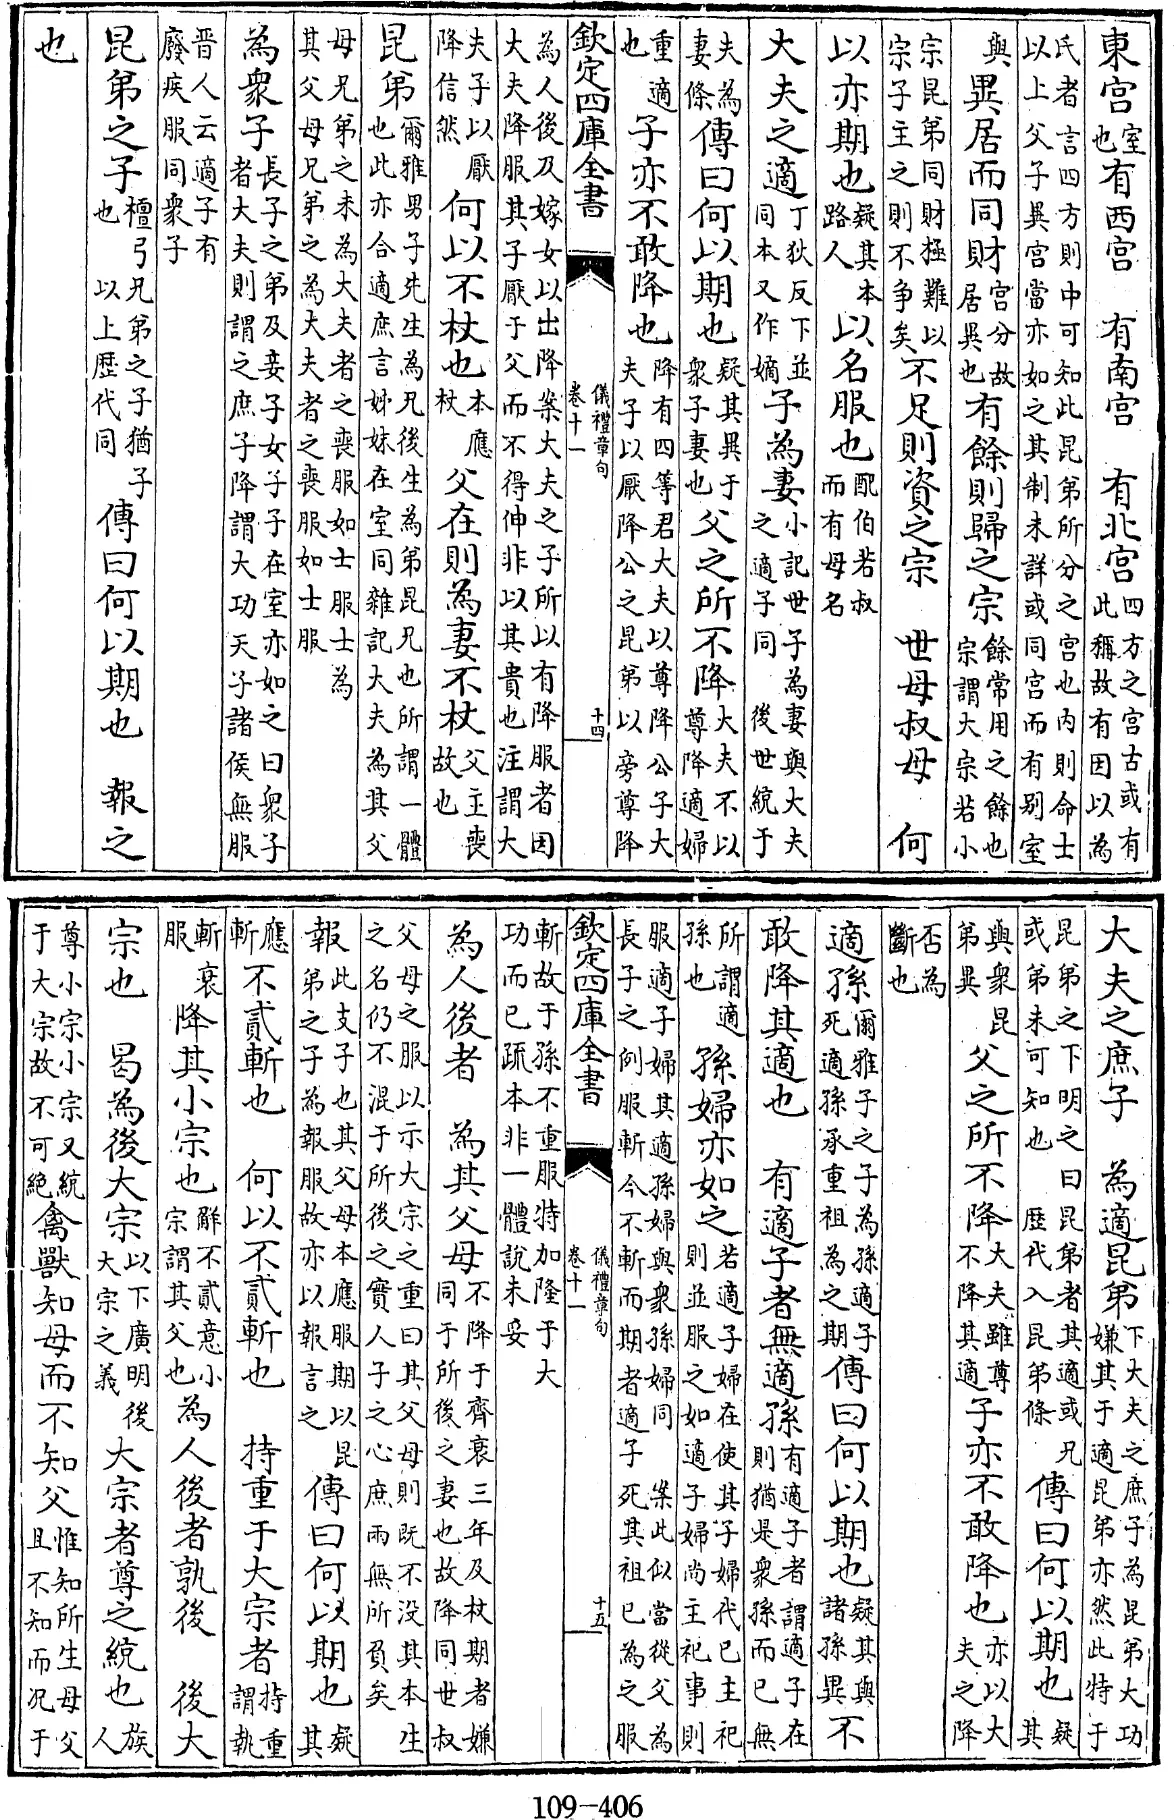 東宫室也有西宫 有南宫 有北宫四方之宫古或有此稱故有因以為
氏者言四方則中可知此昆弟所分之宫也内則命士以上父子異宫當亦如之其制未詳或同宫而有别室
與異居而同財宫分故居異也有餘則歸之宗餘常用之餘也宗謂大宗若小
宗昆弟同財極難以宗子主之則不争矣不足則資之宗 世母叔母 何
以亦期也疑其本路人以名服也配伯若叔而有母名
大夫之適丁狄反下並同本又作嫡子為妻小記世子為妻與大夫之適子同 後世統于
夫為妻條傳曰何以期也疑其異于衆子妻也父之所不降大夫不以尊降適婦
重適也子亦不敢降也降有四等君大夫以尊降公子大夫子以厭降公之昆弟以旁尊降
欽定四庫全書 儀禮章句卷十一 十四
為人後及嫁女以出降案大夫之子所以有降服者因大夫降服其子厭于父而不得伸非以其貴也注謂大
夫子以厭降信然何以不杖也本應杖父在則為妻不杖父主喪故也
昆弟爾雅男子先生為兄後生為弟昆兄也所謂一體也此亦合適庶言姊妹在室同雜記大夫為其父
母兄弟之未為大夫者之喪服如士服士為其父母兄弟之為大夫者之喪服如士服
為衆子長子之弟及妾子女子子在室亦如之曰衆子者大夫則謂之庶子降謂大功天子諸侯無服
晋人云適子有廢疾服同衆子
昆弟之子檀弓兄弟之子猶子也 以上歴代同傳曰何以期也 報之
也
大夫之庶子 為適昆弟下大夫之庶子為昆弟大功嫌其于適昆弟亦然此特于
昆弟之下明之曰昆弟者其適或兄或弟未可知也 歴代入昆弟條傳曰何以期也疑其
與衆昆弟異父之所不降大夫雖尊不降其適子亦不敢降也亦以大夫之降
否為斷也
適孫爾雅子之子為孫適子死適孫承重祖為之期傳曰何以期也疑其與諸孫異不
敢降其適也 有適子者無適孫有適子者謂適子在則猶是衆孫而已無
所謂適孫也孫婦亦如之若適子婦在使其子婦代已主祀則並服之如適子婦尚主祀事則
服適子婦其適孫婦與衆孫婦同 案此似當從父為長子之例服斬今不斬而期者適子死其祖已為之服
欽定四庫全書 儀禮章句卷十一 十五
斬故于孫不重服特加隆于大功而已疏本非一體說未妥
為人後者 為其父母不降于齊衰三年及杖期者嫌同于所後之妻也故降同世叔
父母之服以示大宗之重曰其父母則既不没其本生之名仍不混于所後之實人子之心庶兩無所負矣
報此支子也其父母本應服期以昆弟之子為報服故亦以報言之傳曰何以期也疑其
應斬不貳斬也 何以不貳斬也 持重于大宗者持重謂執
斬衰服降其小宗也解不貳意小宗謂其父也為人後者孰後 後大
宗也 曷為後大宗以下廣明後大宗之義大宗者尊之統也族人
尊小宗小宗又統于大宗故不可絶禽獸知母而不知父惟知所生母父且不知而况于
109-406